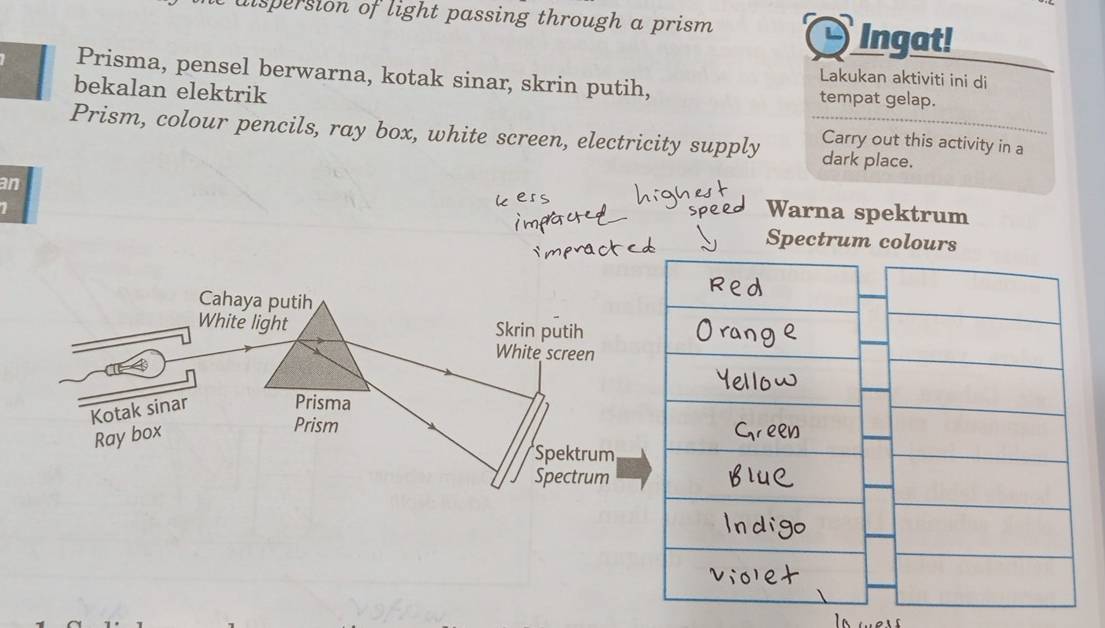 dispersion of light passing through a prism
Ingat!
Lakukan aktiviti ini di
tempat gelap.
Carry out this activity in a
dark place.
Prisma, pensel berwarna, kotak sinar, skrin putih,
bekalan elektrik
Prism, colour pencils, ray box, white screen, electricity supply
an
highest
speed
Warna spektrum
Spectrum colours
Cahaya putih
White light
Skrin putih
White screen
Kotak sinar
Ray box
Prisma
Prism
Spektrum
Spectrum
Red
Orange
Yellow
Green
Blue
Indigo
violet